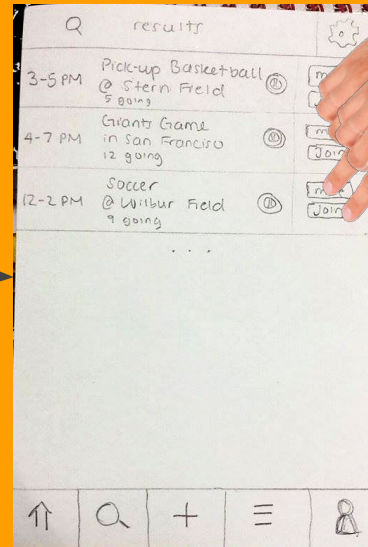 results
3-5 PM
Pick-up Basketball
@ Stern Field
5 going
4-7 PM
Giants Game
in San Francisco
12 going
Join
12-2 PM
Soccer
@ Wilbur Field
9 going
Join
. . .